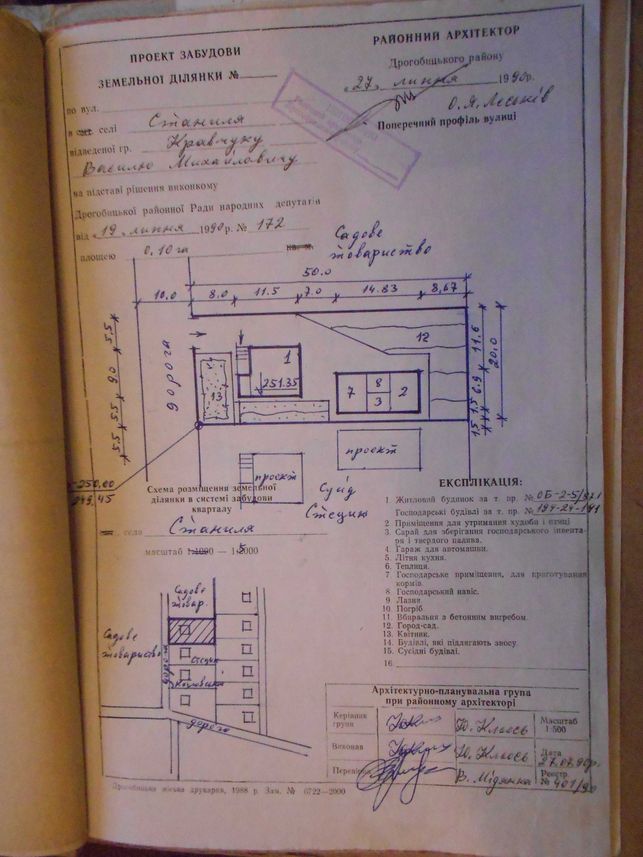 ПРОЕКТ ЗАБУДОВИ
ЗЕМЕЛЬНОЇ ДІЛЯНКИ №
РАЙОННИЙ АРХІТЕКТОР
Дрогобицького району
«27» липня 1990р.
О.Я. Леськів
Поперечний профіль вулиці
по вул.
в смт. селі Станиля
відведеної гр. Кравчуку
Василю Михайловичу
на підставі рішення виконкому
Дрогобицької районної Ради народних депутатів
від «19» липня 1990р. № 172
площею 0.10 га кв. м.
Садове
товариство
50.0
10.0 8.0 11.5 7.0 14.83 8,67
5.5 9.0 5.5 5.5
дорога
1
251.35
13
12
7 8 3 2
11,6
6.9
1,5
1,5
20,0
250.00
249,45
проект
проект
Сусід
Стецик
Схема розміщення земельної
ділянки в системі забудови
кварталу
смт. село Станиля
масштаб 1:1000 — 1:5000
Садове
товар.
Садове
товариство
дорога
Стецик
Козловський
дорога
ЕКСПЛІКАЦІЯ:
1 Житловий будинок за т. пр. №
Господарські будівлі за т. пр. №
2 Приміщення для утримання худоби і птиці
3 Сарай для зберігання господарського інвента-
ря і твердого палива.
4 Гараж для автомашин.
5 Літня кухня.
6 Теплиця.
7 Господарське приміщення, для приготування
кормів.
8 Господарський навіс.
9 Лазня
10 Погріб
11 Вбиральня з бетонним вигребом.
12 Город-сад.
13 Квітник.
14 Будівлі, які підлягають зносу
15 Сусідні будівлі.
16
Архітектурно-планувальна група
при районному архітекторі
Керівник
група
Масштаб
1:500
Виконав
Дата
27.07.90р.
Перевірив
В. Мідянка
Реєстр.
№ 401/90
Дрогобицька міська друкарня, 1988 р. Зам. № 6722—2000